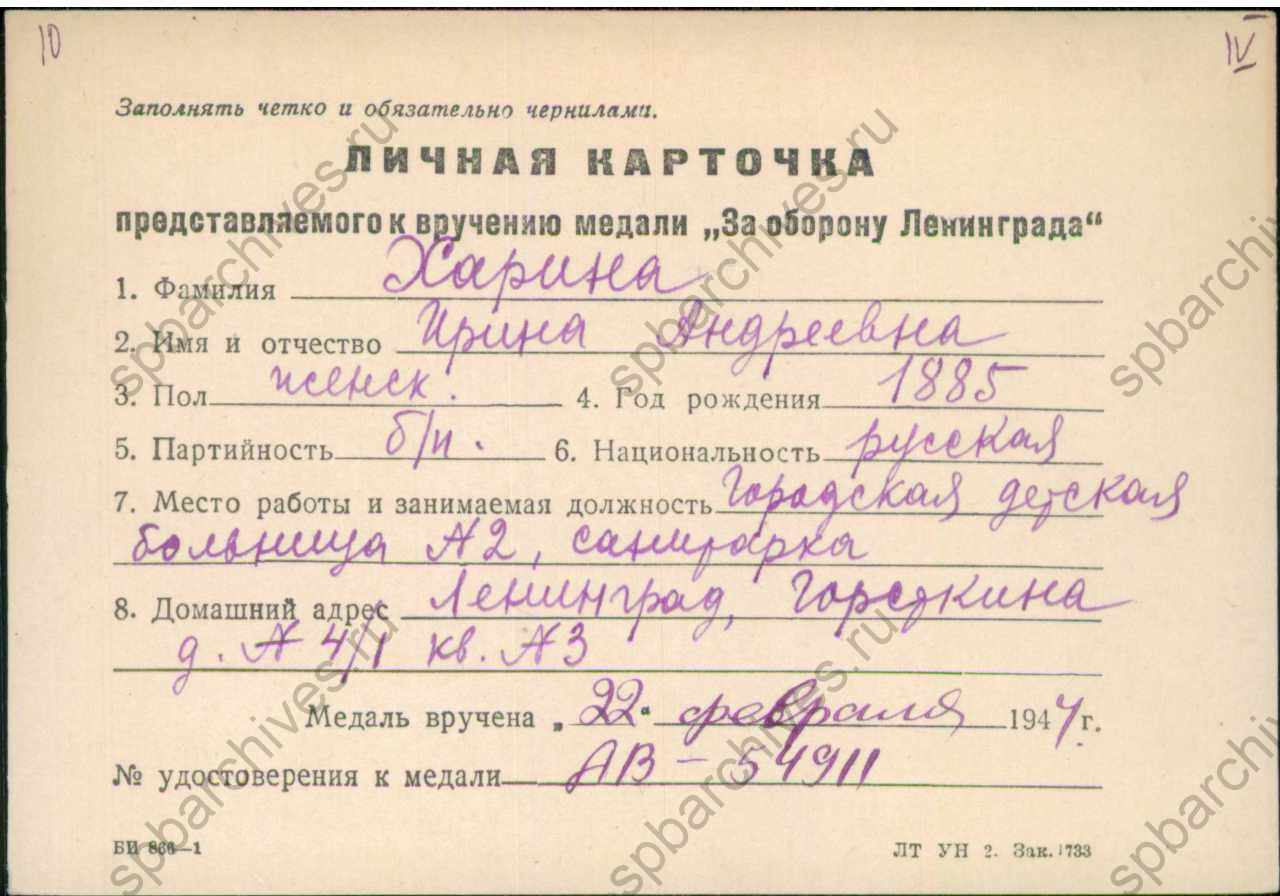 10 IV
Заполнять четко и обязательно чернилами.
ЛИЧНАЯ КАРТОЧКА
представляемого к вручению медали „За оборону Ленинграда“
1. Фамилия Харина
2. Имя и отчество Ирина Андреевна
3. Пол женск. 4. Год рождения 1885
5. Партийность б/п. 6. Национальность русская
7. Место работы и занимаемая должность Городская детская
больница №2, санитарка
8. Домашний адрес Ленинград, Горсткина
д. № 4/1 кв. №3
Медаль вручена „22“ февраля 1944 г.
№ удостоверения к медали АВ-54911
БИ 866—1 ЛТ УН 2. Зак. 1733
spbarchives.ru